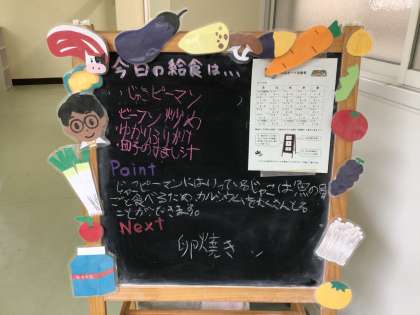 今日の給食は…
じゃこピーマン
ビーフン炒め
ゆかりふりかけ
団子のすまし汁
Point
じゃこピーマンにはいっているじゃこは魚の骨
ごと食べるため、カルシウムをたくさんとる
ことができます。
Next
卵焼き